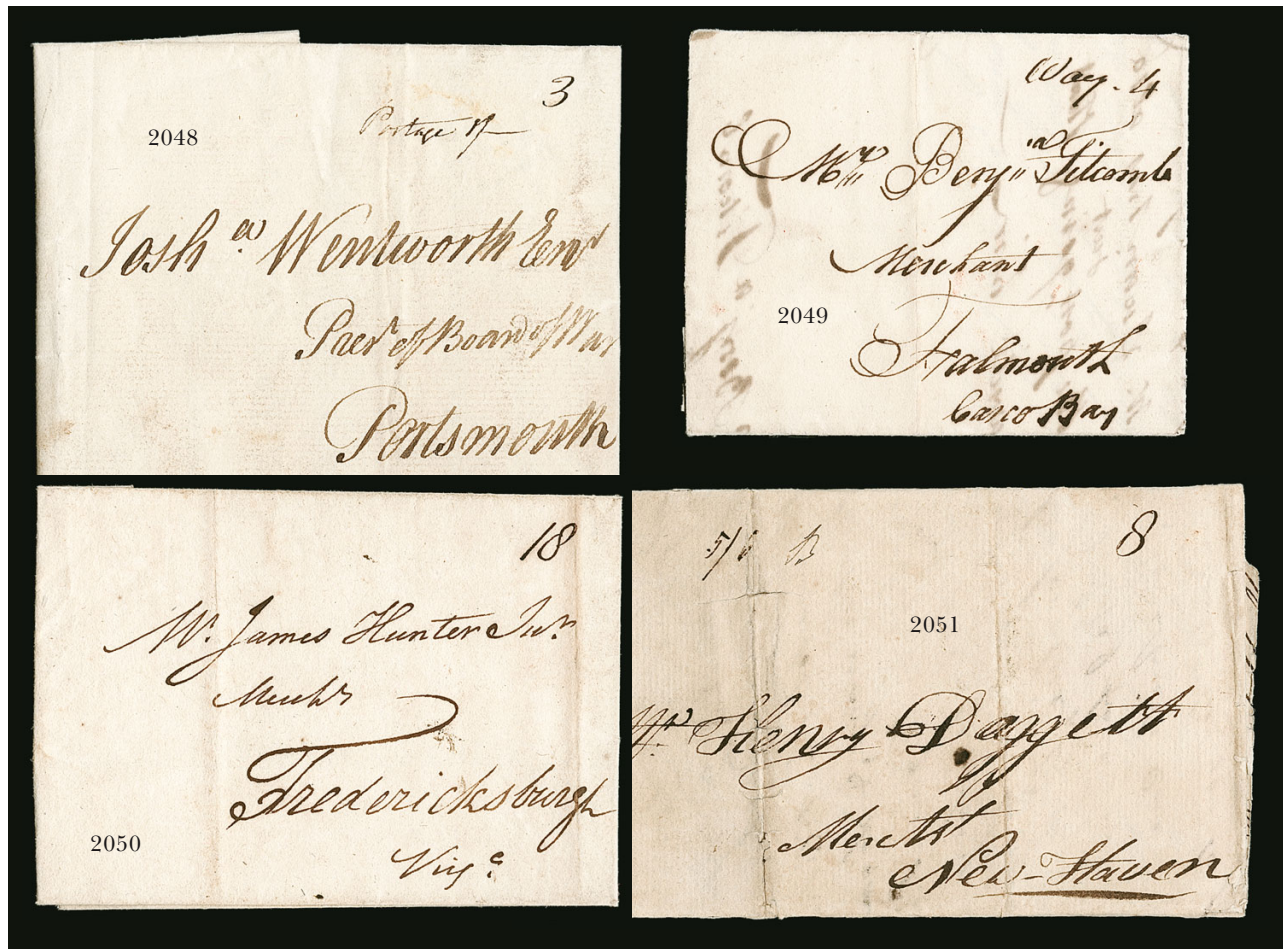 3
Portage 1/-
2048
Josh a Wentworth
of Board of War
Portsmouth
Way. 4
Mr Benja Titcomb
Merchant
2049
Falmouth
Casco Bay
18
Mr. James Hunter Junr
Fredericksburgh
2050
Virga
8
2051
Mr. Henry Daggett
Merct
New-Haven